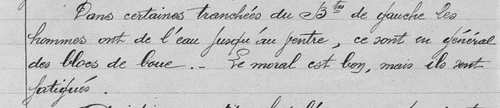 Dans certaines tranchées du B^on de gauche les
hommes ont de l'eau jusqu'au ventre, ce sont en général
des blocs de boue. _ Le moral est bon, mais ils sont
fatigués.